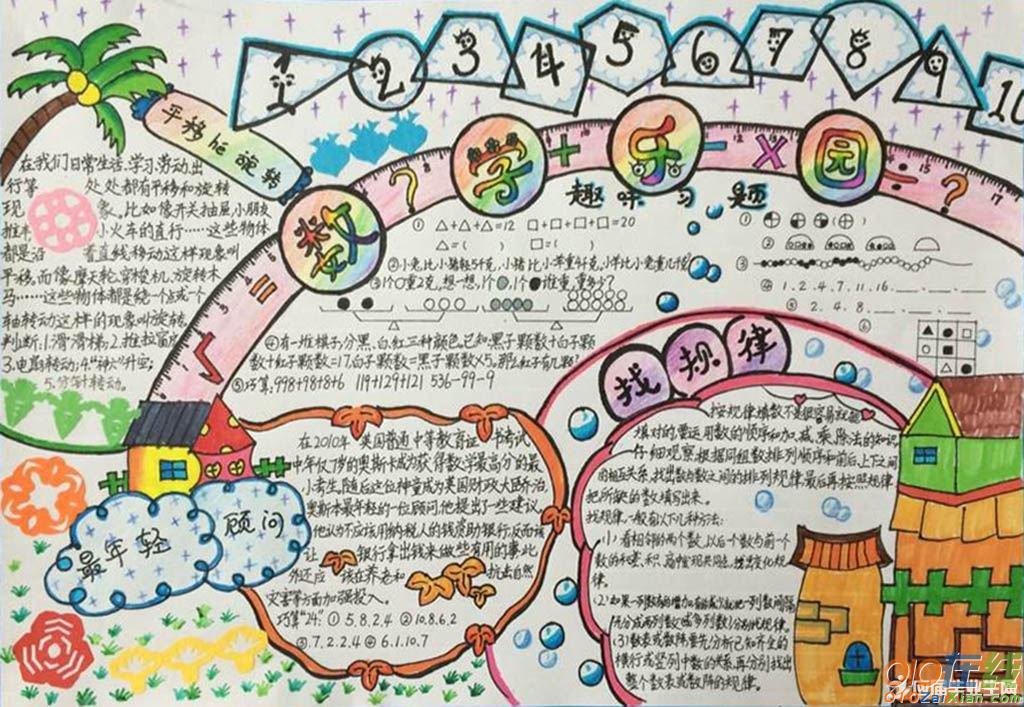 1 2 3 4 5 6 7 8 9 10
数学乐园
? + - × ÷ ?
= √
平移和旋转
在我们日常生活、学习、劳动出
行等 处处都有平移和旋转
现 象。比如像开关抽屉,小朋友
小火车的直行……这些物体
都是沿 着直线移动这样现象叫
平移。而像摩天轮,穿梭机,旋转木
马……这些物体都是绕一个点或一个
轴转动这样的现象叫旋转
判断:1.滑滑梯;2.推拉窗户
3.电扇转动;4."神六"升空;
5.分针转动。
趣味习题
① △+△+△=12 □+□+□+□=20
△=( ) □=( )
②小兔比小猪轻5千克,小猪比小羊重4千克,小羊比小兔重几千克
③1个○重2克,想一想,1个 ,1个●谁重,重多少?
④有一堆棋子,分黑、白、红三种颜色,已知:黑子颗数+白子颗
数+红子颗数=17,白子颗数=黑子颗数×5,那么红子有几颗?
⑤巧算:998+98+8+6 119+129+121 536-99-9
① ( )
②
③
④ 1.2.4.7.11.16.
⑤ 2.4.8.
⑥
最年轻顾问
在2010年,英国普通中等教育证 书考试
中年仅7岁的奥斯卡成为获得数学最高分的最
小考生,随后这位神童成为英国财政大臣乔治.
奥斯本最年轻的一位顾问,他提出了一些建议。
他认为不应该用纳税人的钱资助银行,反而该
让 银行拿出钱来做些有用的事,此
外还应 该在养老和 抗击自然
灾害等方面加强投入。
巧算"24": ① 5.8.2.4 ② 10.8.6.2
③ 7.2.2.4 ④ 6.1.10.7
找规律
按规律填数不是很容易就能
填对的,需运用数的顺序和加、减、乘、除法的知识
仔细观察,根据同组数排列顺序和前后、上下之间
的相互关系,找出数与数之间的排列规律,最后再按照规律
把所缺的数填写出来。
找规律,一般有以下几种方法:
(1)看相邻两个数,以后个数与前一个
数的和、差、积、商中发现共同点,推出变化规
律。
把一列数间隔
先分成两列数(或多列数)分别找规律。
(3)数表或数阵要先分析已知齐全的
横行或竖列中数的关系,再分别找出
整个数表或数阵的规律。
010在线
应届毕业生网
010ZaiXian.com